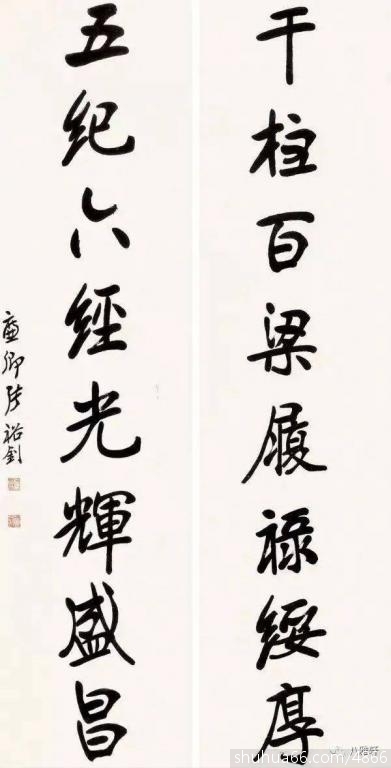 千柱百梁履祿綏厚
五紀六經光輝盛昌
廉卿張裕釗
八雅轩
shuhua66.com/4866